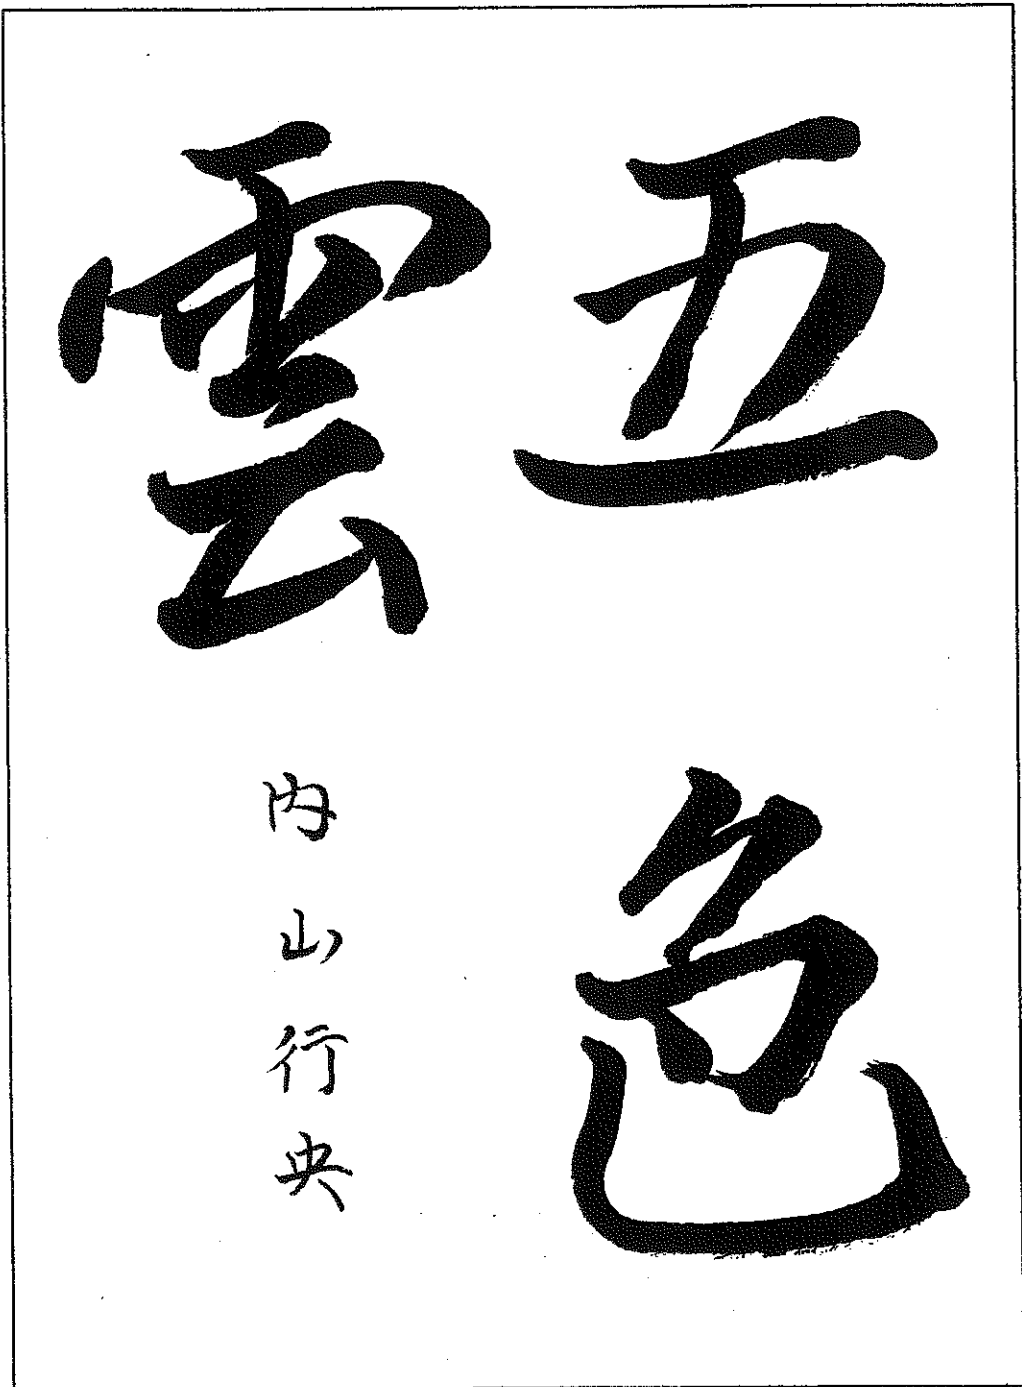 五色
雲
内山行央